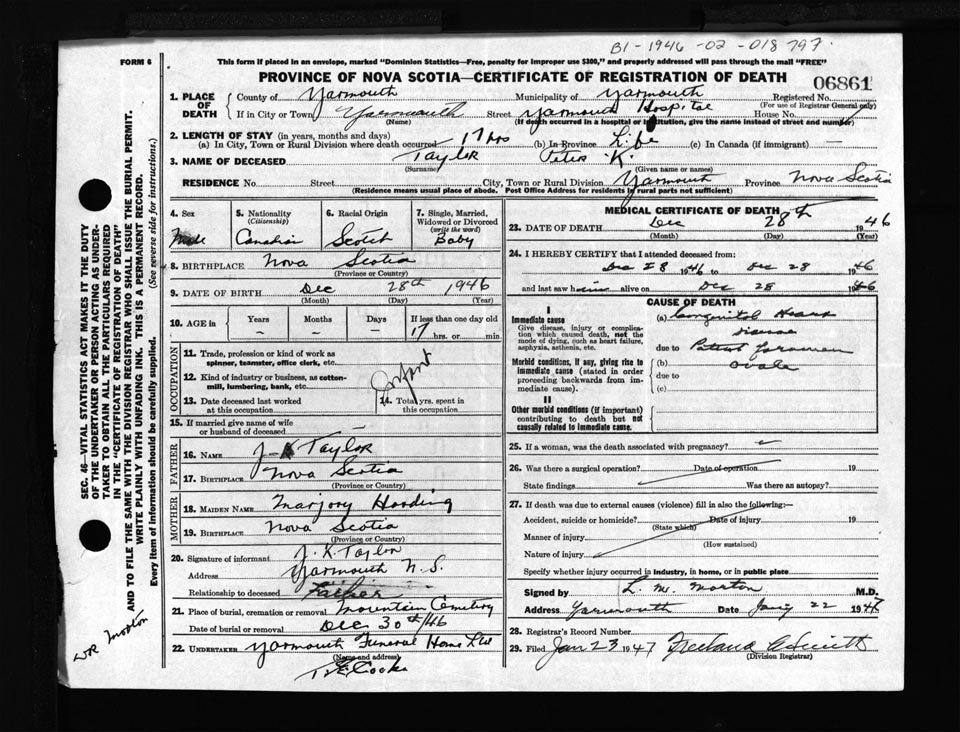 B1-1946-02-018797.
FORM 6
This form if placed in an envelope, marked "Dominion Statistics—Free, penalty for improper use $300," and properly addressed will pass through the mail "FREE"
PROVINCE OF NOVA SCOTIA—CERTIFICATE OF REGISTRATION OF DEATH
06861
1. PLACE OF DEATH County of Yarmouth Municipality of Yarmouth Registered No.
(For use of Registrar General only)
If in City or Town Yarmouth Street Yarmouth Hospital House No.
(Name) (If death occurred in a hospital or institution, give the name instead of street and number)
2. LENGTH OF STAY (in years, months and days)
(a) In City, Town or Rural Division where death occurred 17 hrs (b) In Province Life (c) In Canada (if immigrant) —
3. NAME OF DECEASED Taylor Peter K.
(Surname) (Given name or names)
RESIDENCE No. Street City, Town or Rural Division Yarmouth Province Nova Scotia
(Residence means usual place of abode. Post Office Address for residents in rural parts not sufficient)
4. Sex
Male
5. Nationality
(Citizenship)
Canadian
6. Racial Origin
Scotch
7. Single, Married, Widowed or Divorced
(write the word)
Baby
8. BIRTHPLACE Nova Scotia
(Province or Country)
9. DATE OF BIRTH Dec 28th 1946
(Month) (Day) (Year)
10. AGE in Years Months Days If less than one day old
– – – 17 hrs. or min.
OCCUPATION
11. Trade, profession or kind of work as spinner, teamster, office clerk, etc.
12. Kind of industry or business, as cotton-mill, lumbering, bank, etc.
Infant
13. Date deceased last worked at this occupation
14. Total yrs. spent in this occupation
15. If married give name of wife or husband of deceased
FATHER
16. Name J K Taylor
17. Birthplace Nova Scotia
(Province or Country)
MOTHER
18. Maiden Name Marjory Harding
19. Birthplace Nova Scotia
(Province or Country)
20. Signature of informant J. K. Taylor
Address Yarmouth N.S.
Relationship to deceased Father
21. Place of burial, cremation or removal Mountain Cemetery
Date of burial or removal Dec 30th/46
22. UNDERTAKER Yarmouth Funeral Home Ltd
(Name and address)
Cooke
MEDICAL CERTIFICATE OF DEATH
23. DATE OF DEATH Dec 28th 1946
(Month) (Day) (Year)
24. I HEREBY CERTIFY that I attended deceased from:
Dec 28 1946 to Dec 28 1946
and last saw him alive on Dec 28 1946
CAUSE OF DEATH
I
Immediate cause
Give disease, injury or complication which caused death, not the mode of dying, such as heart failure, asphyxia, asthenia, etc.
(a) Congenital Heart
disease
due to Patent foramen
Morbid conditions, if any, giving rise to immediate cause (stated in order proceeding backwards from immediate cause).
(b) ovale
due to
(c)
II
Other morbid conditions (if important) contributing to death but not causally related to immediate cause.
25. If a woman, was the death associated with pregnancy?
26. Was there a surgical operation? Date of operation 19
State findings Was there an autopsy?
27. If death was due to external causes (violence) fill in also the following:—
Accident, suicide or homicide? Date of injury 19
(State which)
Manner of injury
(How sustained)
Nature of injury
Specify whether injury occurred in industry, in home, or in public place
Signed by L. M. Morton M.D.
Address Yarmouth Date Jany 22 1947
28. Registrar's Record Number
29. Filed Jan 23 1947 Freeland Smith
(Division Registrar)
SEC. 46—VITAL STATISTICS ACT MAKES IT THE DUTY
OF THE UNDERTAKER OR PERSON ACTING AS UNDER-
TAKER TO OBTAIN ALL THE PARTICULARS REQUIRED
IN THE "CERTIFICATE OF REGISTRATION OF DEATH"
AND TO FILE THE SAME WITH THE DIVISION REGISTRAR WHO SHALL ISSUE THE BURIAL PERMIT.
WRITE PLAINLY WITH UNFADING INK. THIS IS A PERMANENT RECORD.
Every item of information should be carefully supplied. (See reverse side for instructions.)
Morton